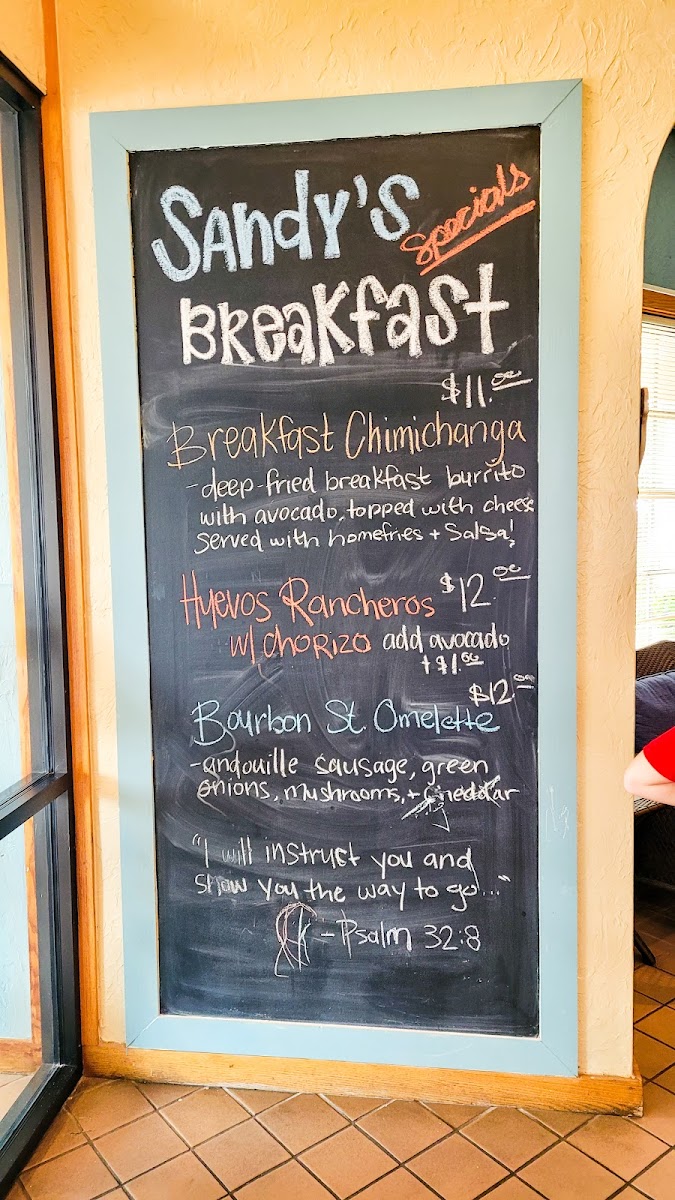 Sandy's Specials
Breakfast
$11.00
Breakfast Chimichanga
-deep-fried breakfast burrito
with avocado, topped with cheese
served with homefries + Salsa!
Huevos Rancheros $12.00
w/ CHORIZO add avocado
+$1.00
$12.00
Bourbon St. Omelette
-andouille sausage, green
onions, mushrooms, + Cheddar
"I will instruct you and
show you the way to go..."
- Psalm 32:8